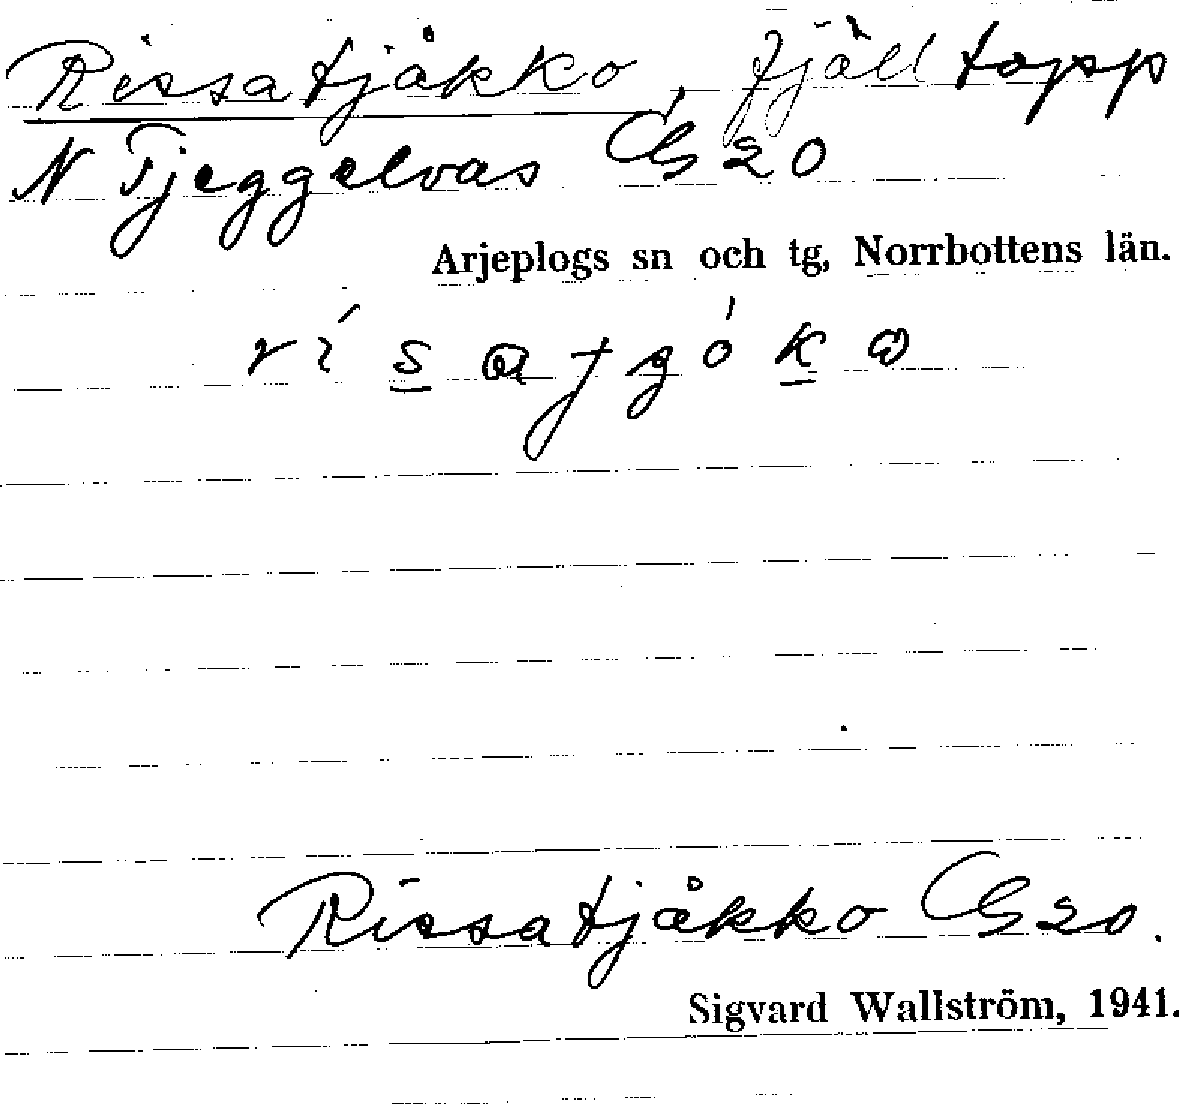 Rissatjåkko, fjälltopp
N Tjeggelvas Gs 20
Arjeplogs sn och tg, Norrbottens län.
Rissatjåkko Gs 20.
Sigvard Wallström, 1941.